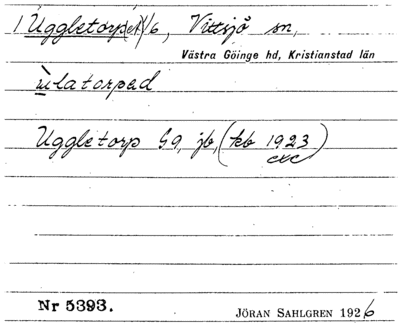 1 Uggletorp(et) 1/6, Vittsjö sn,
Västra Göinge hd, Kristianstad län
ùlatorpad
Uggletorp Gg, jb, (kb 1923)
exc
Nr 5393.
JÖRAN SAHLGREN 1926